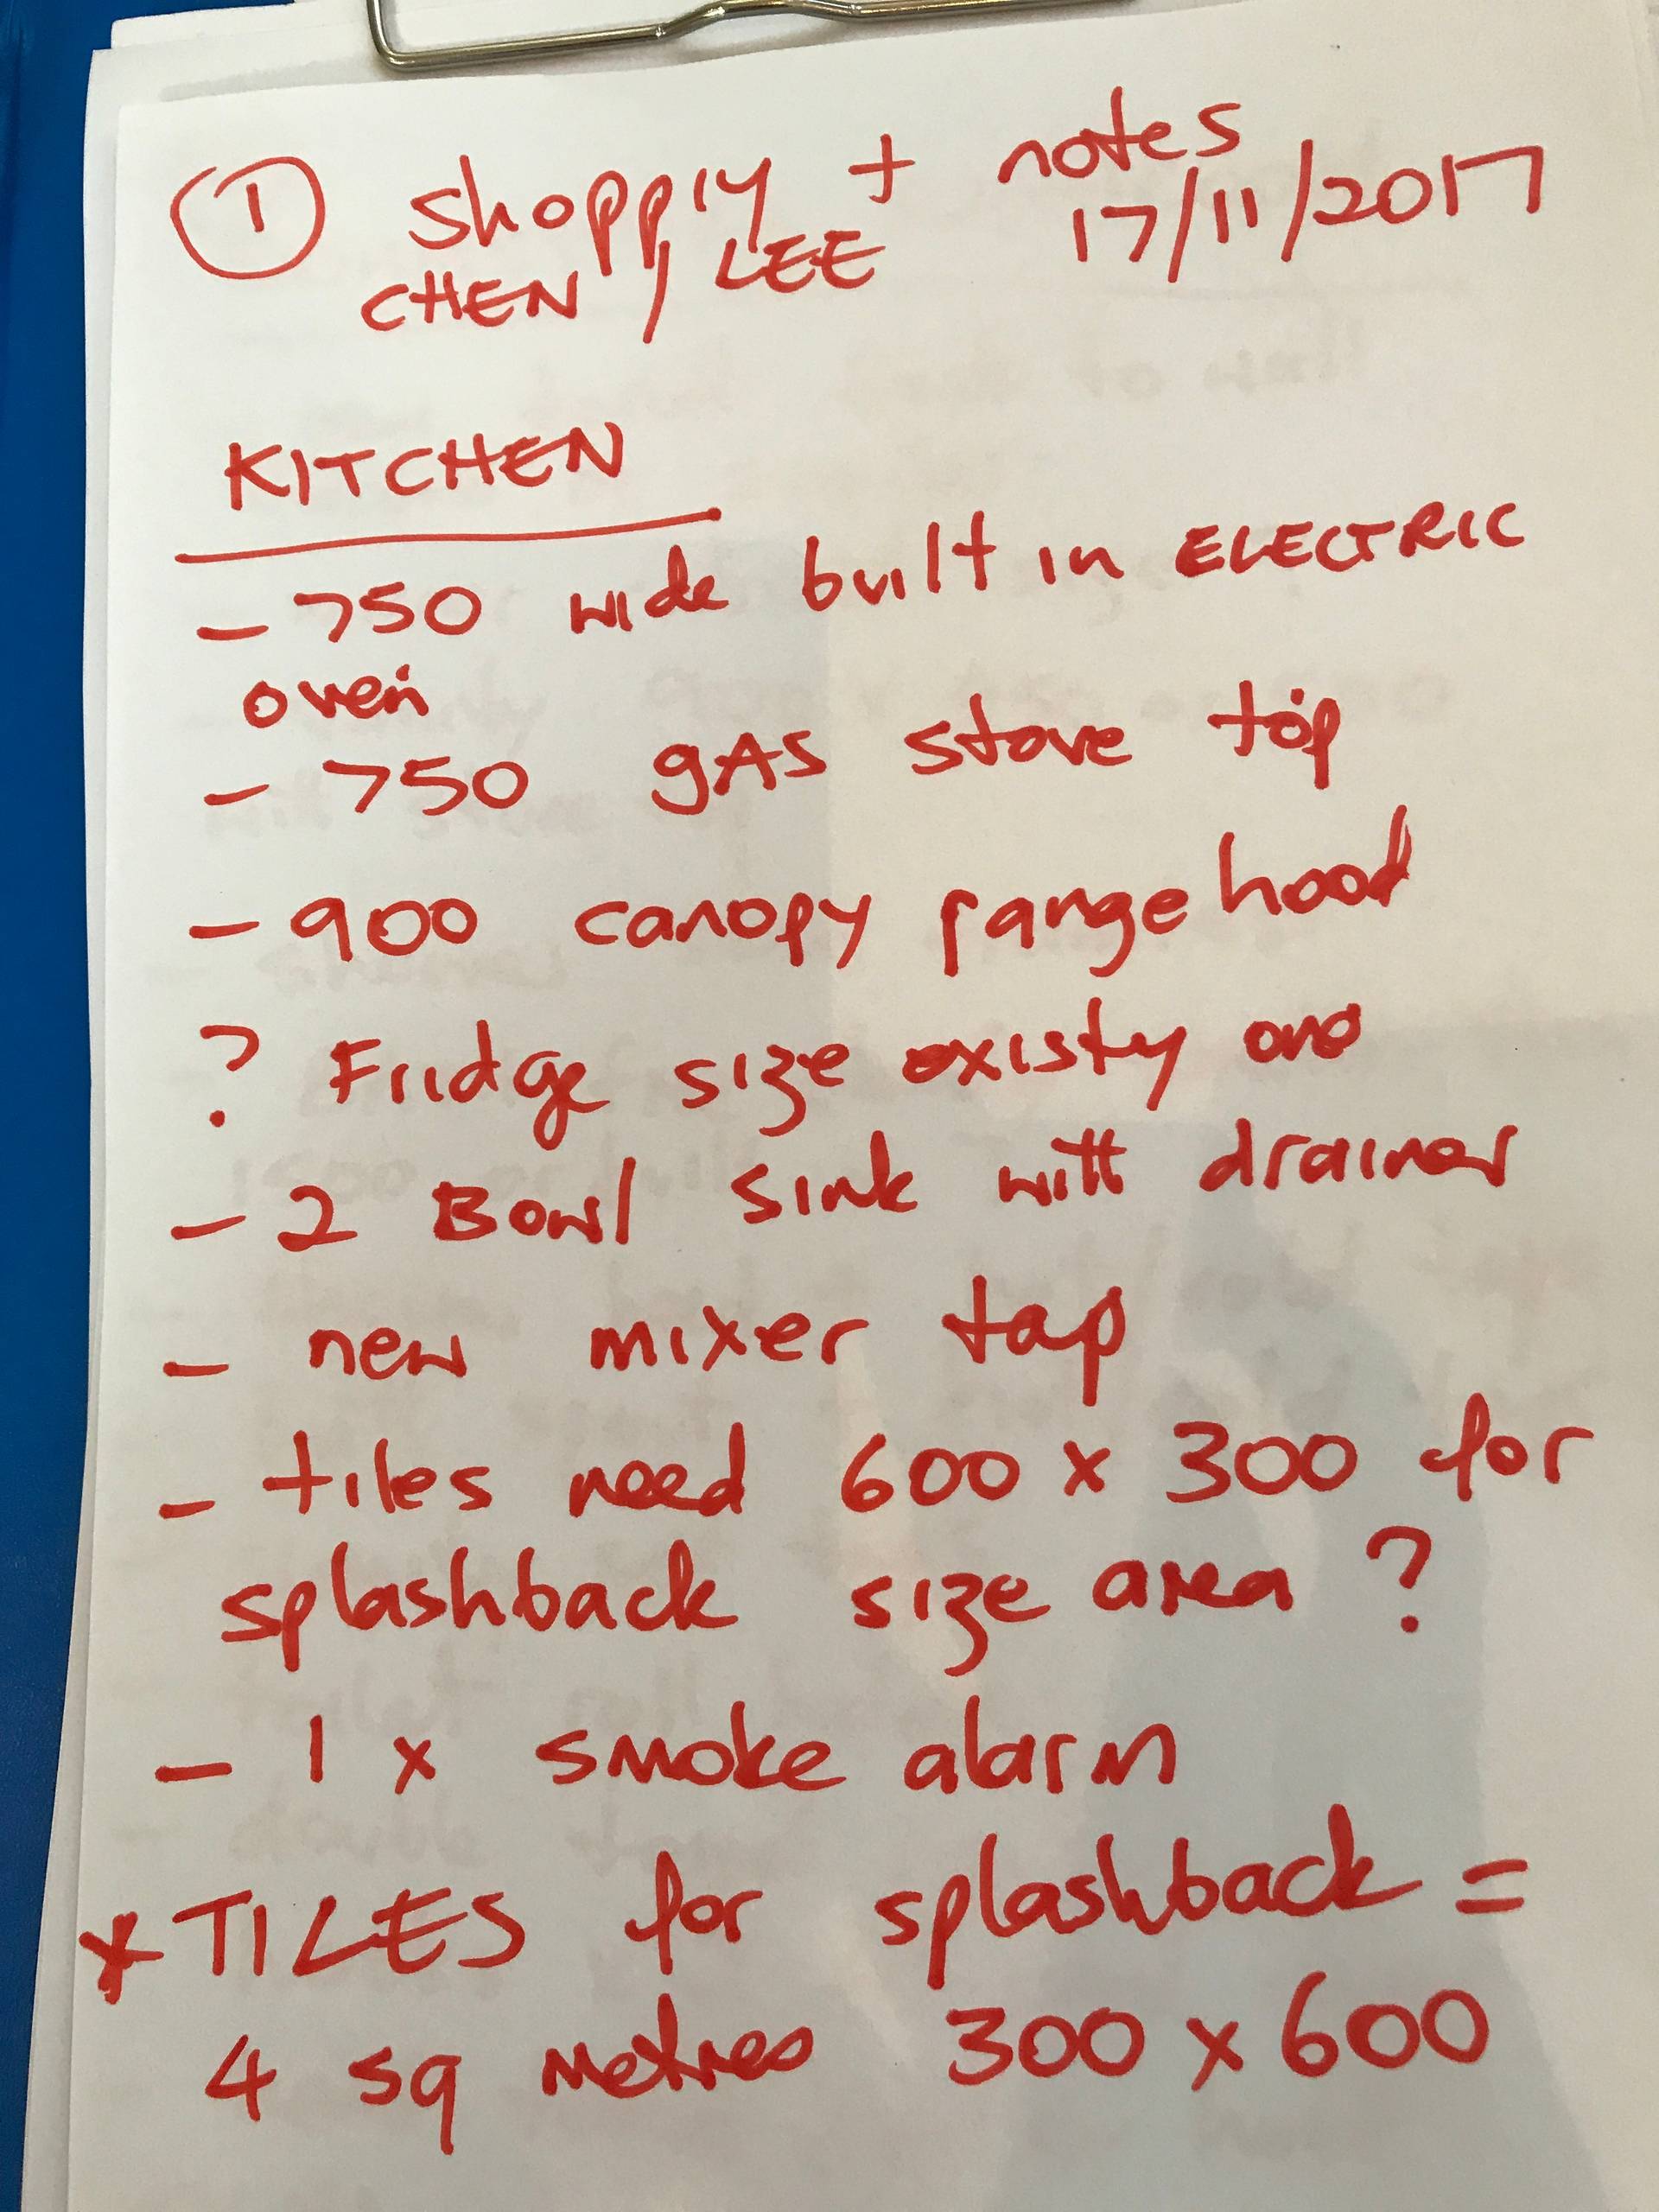 ① shopping + notes
CHEN / LEE 17/11/2017
KITCHEN
- 750 wide built in ELECTRIC
oven
- 750 gAS stove top
- 900 canopy rangehood
? Fridge size existing one
- 2 Bowl sink with drainer
- new mixer tap
- tiles need 600 x 300 for
splashback size area ?
- 1 x smoke alarm
* TILES for splashback =
4 sq metres 300 x 600